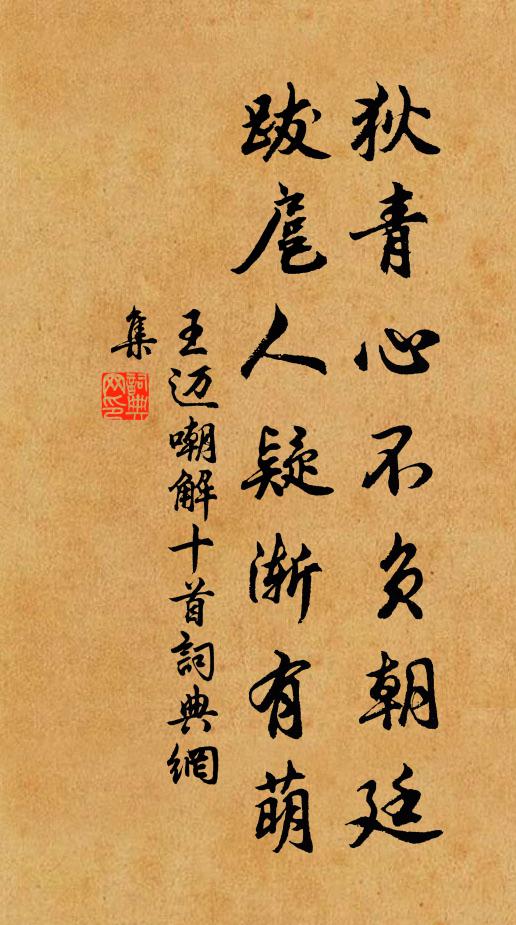 狄青心不负朝廷
跋扈人疑渐有萌
王迈嘲解十首詞典網
集
詞典
网印